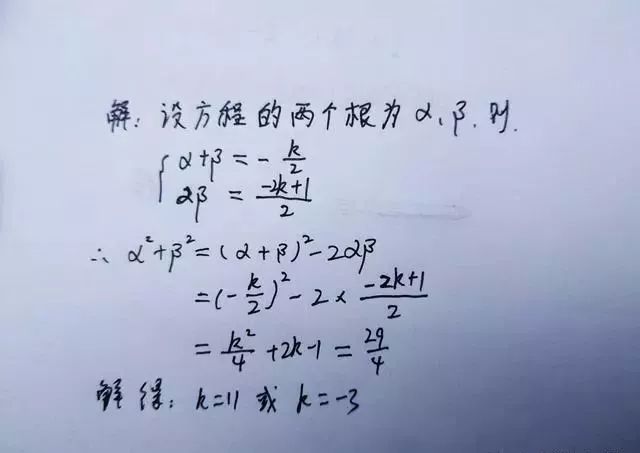 解：设方程的两个根为α、β.则.
α+β=-k/2
αβ=(-2k+1)/2
∴α²+β²=(α+β)²-2αβ
=(-k/2)²-2×(-2k+1)/2
=k²/4+2k-1=29/4
解得：k=11或k=-3